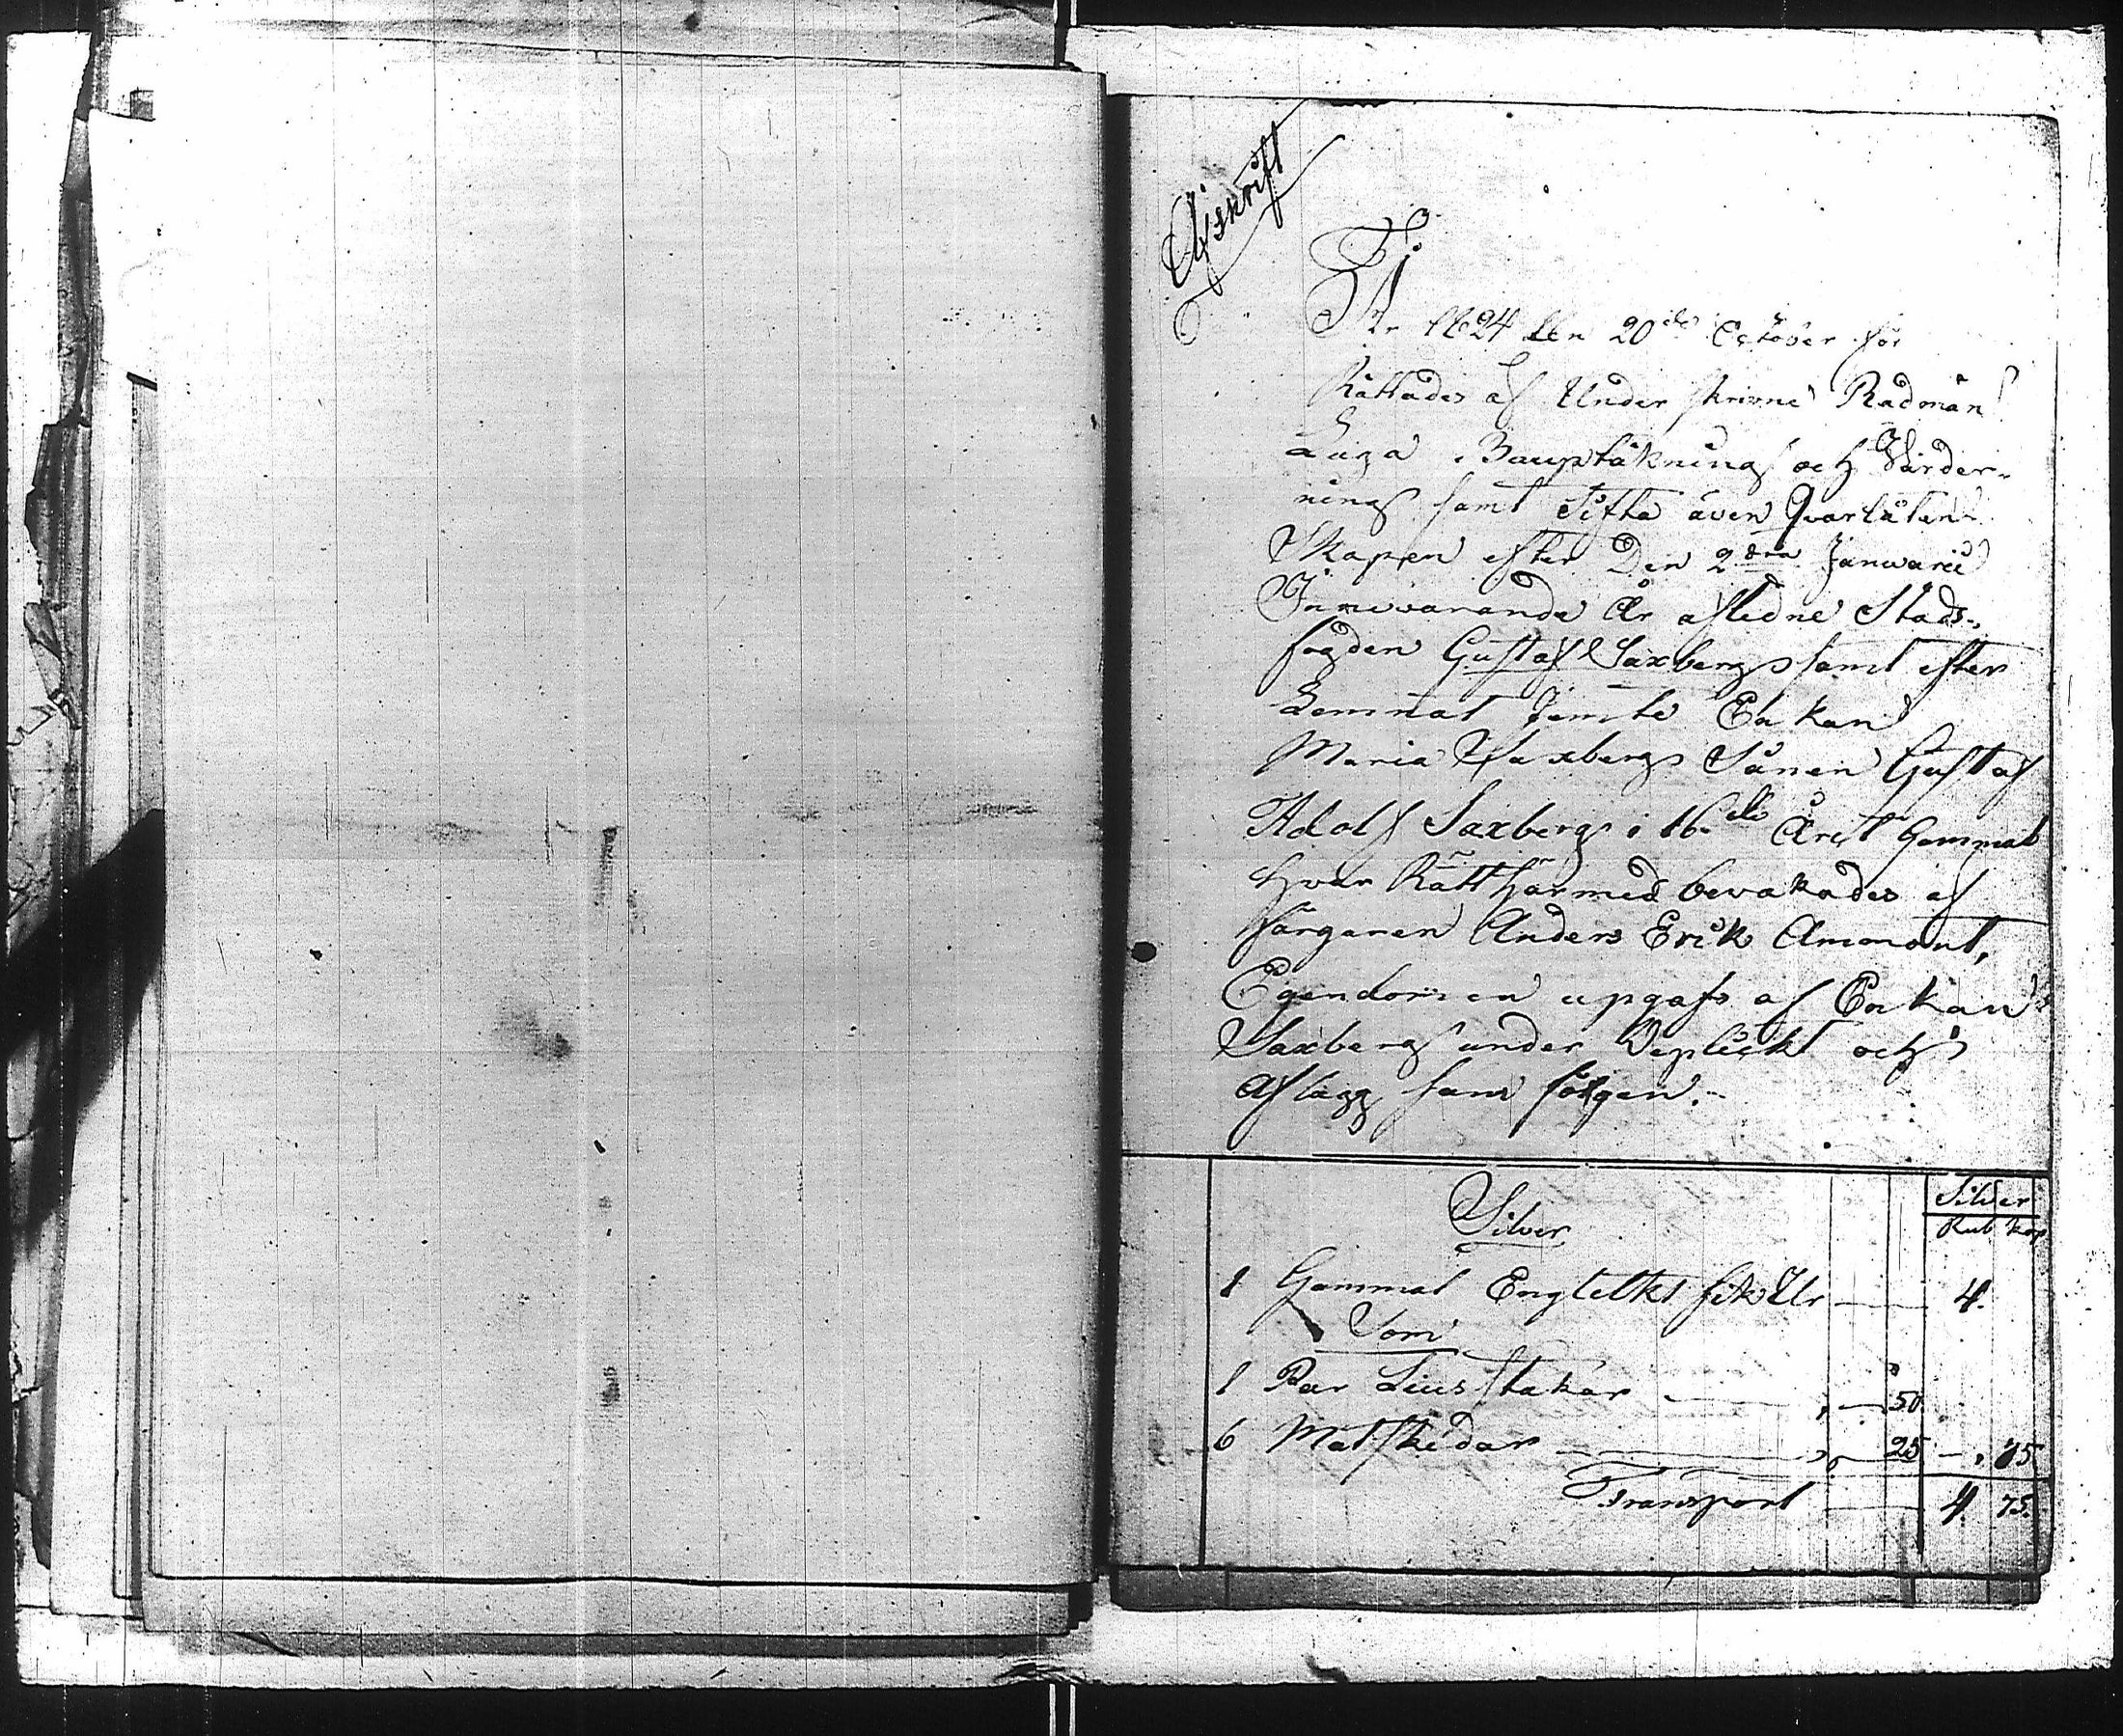 Afskrift
År 1824 den 20de October för
Rättades af Under skrivne Rådmän
Laga Bouptäknings och Värder„
nings samt Sifta över Qvarlåten
Skapen efter Den 2dra Januarii
Innevarande År afledne Stads„
fogden Gustaf Saxberg samt efter
Lemnat jemte Enkan
Maria Saxberg Sånen Gustaf
Adolf Saxberg i 16de Året Gammal
hvars Rätt härmed bevakades af
färgaren Anders Erik Ammont,
Egendomen upgafs af Enkan
Saxberg under Edeplickt och
Aflagg som följen.
Silver
Silver
Rub kop
1 Gammal Engelskt fik Ur — 4.
Tenn
1 Par Liusstakar — „ — 50
6 Matskedar — „ — 25 — „ 75
Transport — 4. 75.